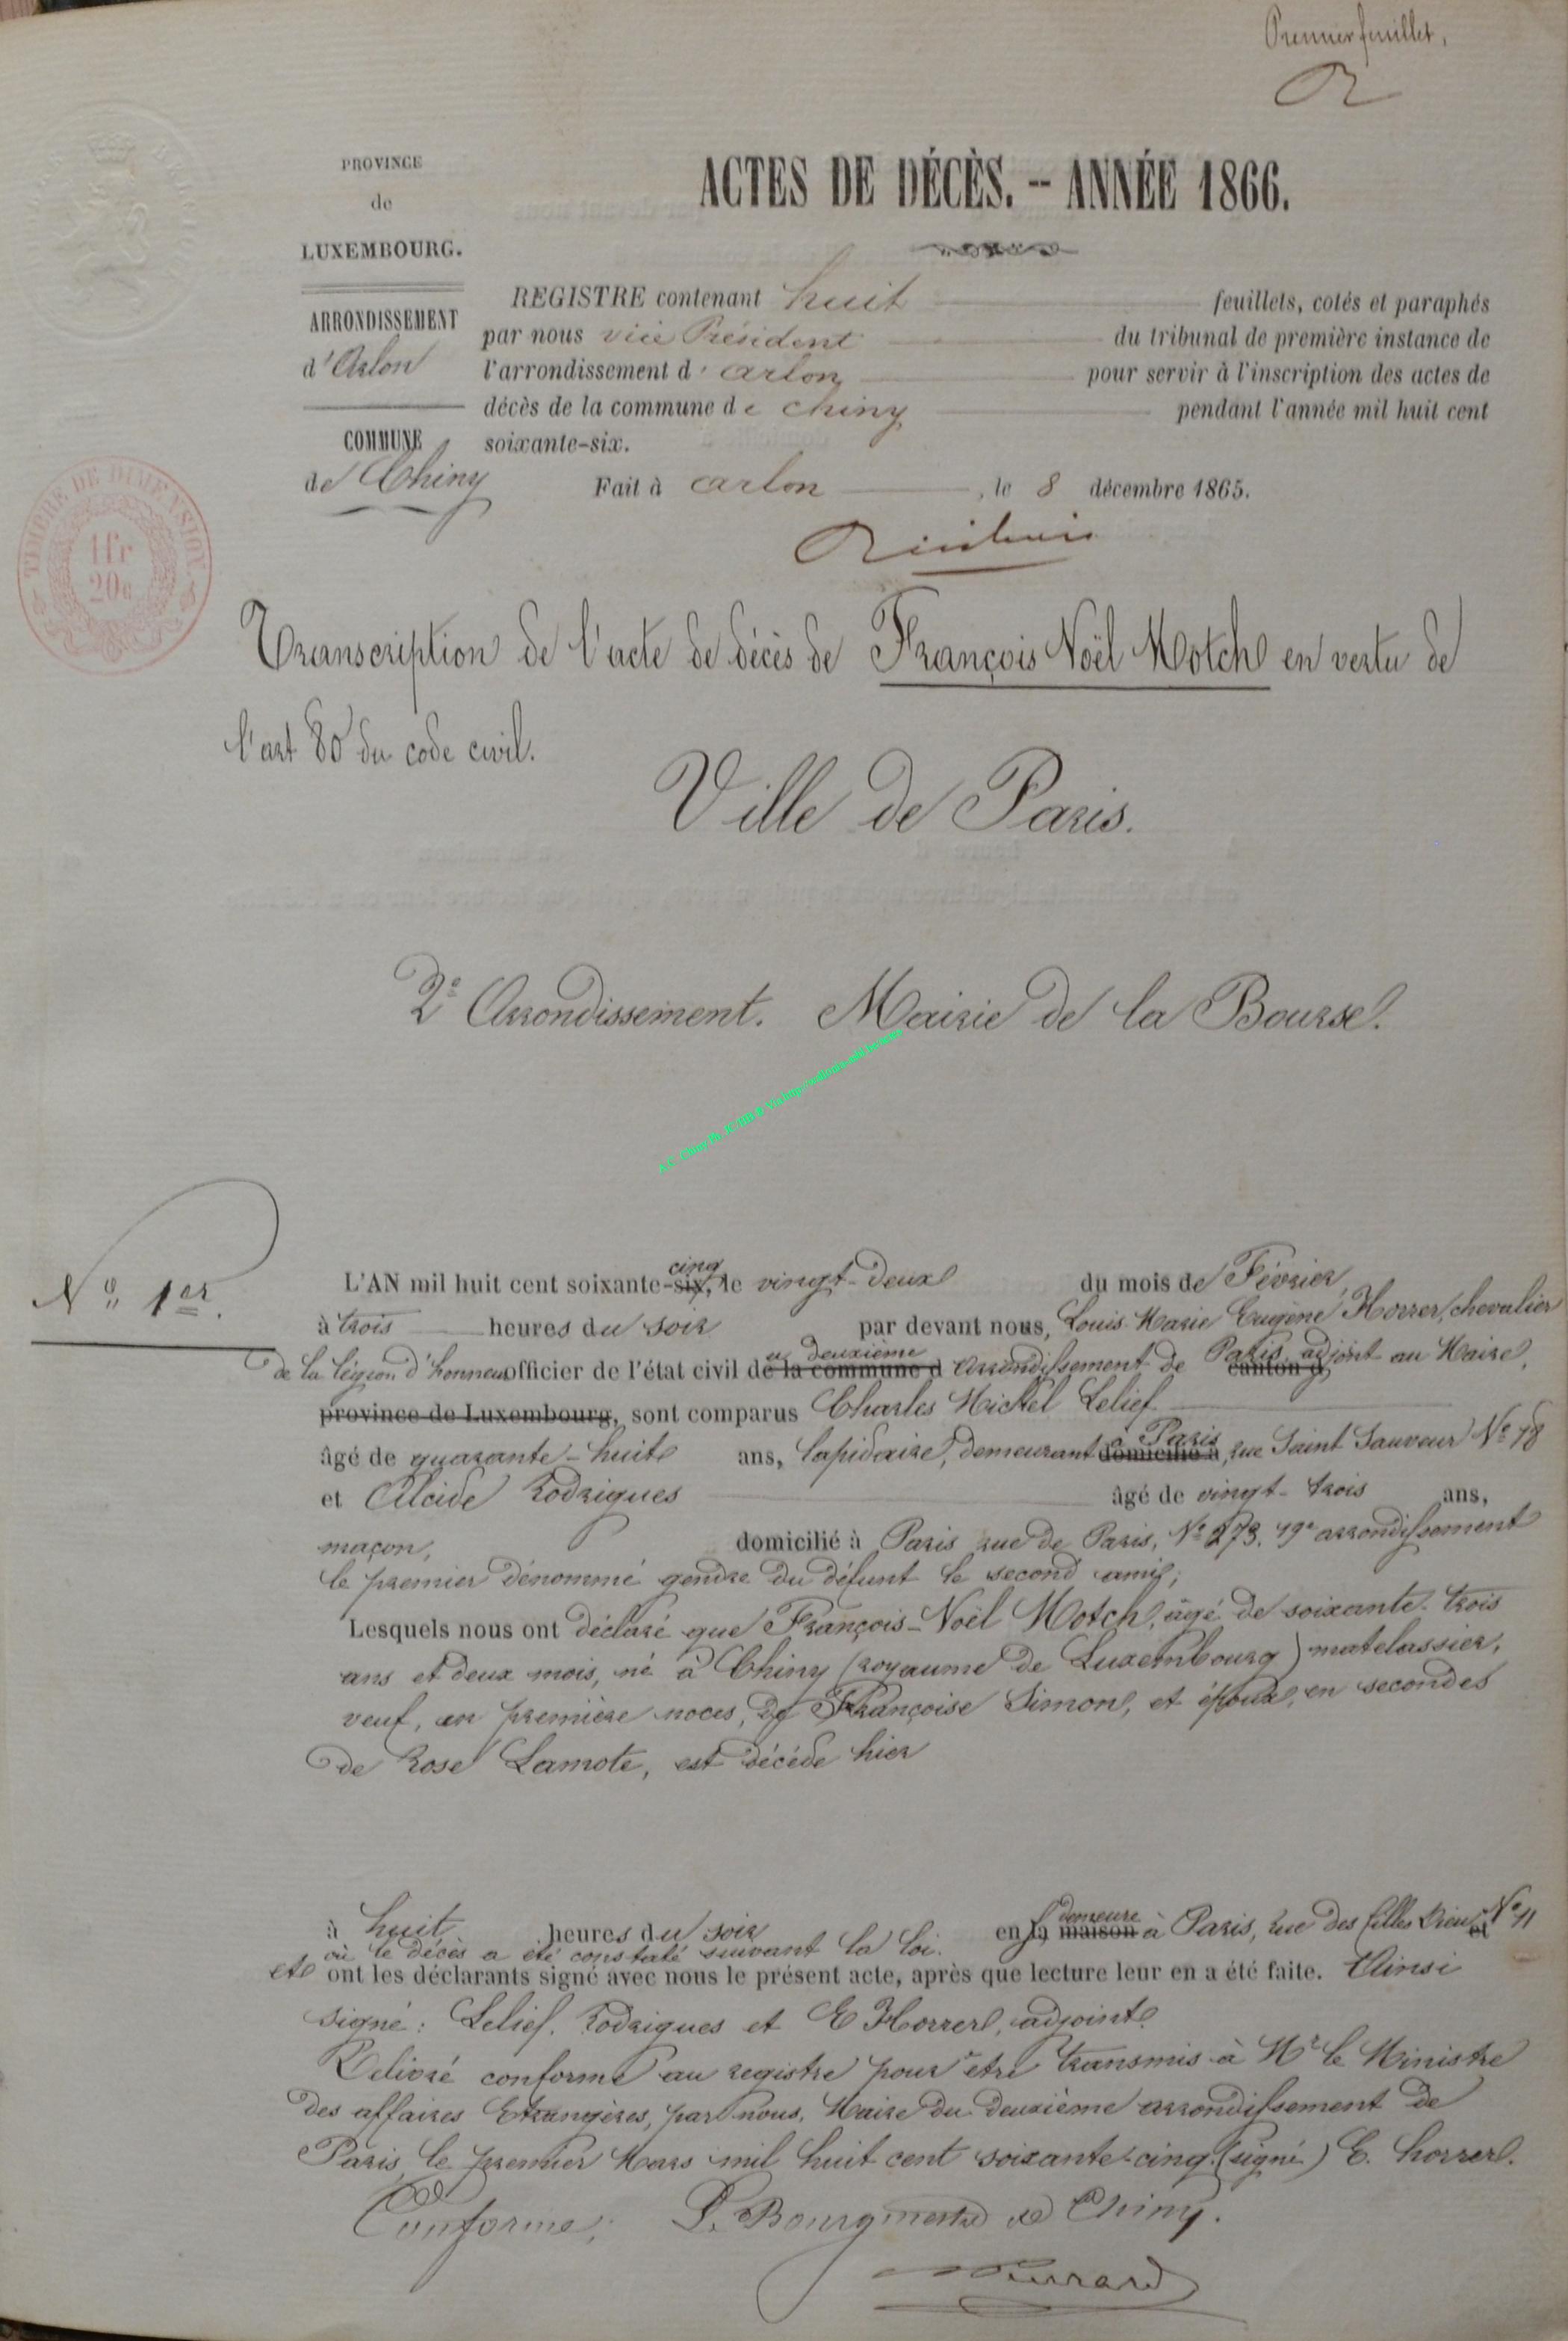 Premier feuillet,
PROVINCE
de
LUXEMBOURG.
ARRONDISSEMENT
d'Arlon
COMMUNE
de Chiny
ACTES DE DÉCÈS. -- ANNÉE 1866.
REGISTRE contenant huit feuillets, cotés et paraphés
par nous vice Président du tribunal de première instance de
l'arrondissement d'arlon pour servir à l'inscription des actes de
décès de la commune de chiny pendant l'année mil huit cent
soixante-six.
Fait à arlon, le 8 décembre 1865.
TIMBRE DE DIMENSION
1 fr
20c
Transcription de l'acte de décès de François Noël Motch en vertu de
l'art 80 du code civil.
Ville de Paris.
2e Arrondissement. Mairie de la Bourse.
No 1er.
cinq
L'AN mil huit cent soixante-six, le vingt-deux du mois de Février,
à trois heures du soir par devant nous, Louis Marie Eugène Horrer, chevalier
u deuxième
de la légion d'honneur officier de l'état civil de la commune d arrondissement de Paris, adjoint au Maire,
canton d
province de Luxembourg, sont comparus Charles Michel Lelief
à Paris
âgé de quarante-huit ans, lapidaire, demeurant domicilié à, rue Saint Sauveur No 78
et Alcide Rodrigues âgé de vingt-trois ans,
maçon, domicilié à Paris rue de Paris, No 273. 19e arrondissement
le premier dénommé gendre du défunt le second ami;
Lesquels nous ont déclaré que François-Noël Motch, âgé de soixante-trois
ans et deux mois, né à Chiny (royaume de Luxembourg) matelassier,
veuf, en première noces, de Françoise Simon, et époux, en secondes
de Rose Lamote, est décédé hier
demeure
à huit heures du soir en sa maison à Paris, rue des filles Dieu No 11 et
où le décès a été constaté suivant la loi.
et ont les déclarants signé avec nous le présent acte, après que lecture leur en a été faite. Ainsi
signé: Lelief. Rodrigues et E Horrer, adjoint.
Délivré conforme au registre pour être transmis à Mr le Ministre
des affaires Etrangères, par nous, Maire du deuxième arrondissement de
Paris, le premier Mars mil huit cent soixante-cinq. (signé) E. horrer.
Conforme; Le Bourgmestre de Chiny.